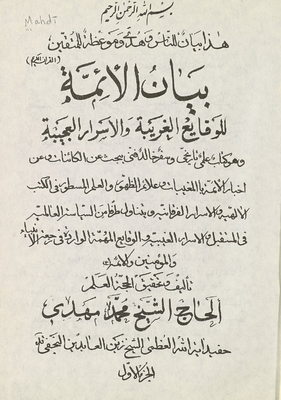 Mahdi
بسم الله الرحمن الرحيم
هذا بيان للناس وهدى وموعظة للمتقين
(القرآن الكريم)
بيان الأئمة
للوقايع الغريبة والاسرار العجيبة
وهو كتاب علمي تاريخي يبحث عن الكائنات وعن
اخبار الائمة بالمغيبات وعلائم الظهور والعلم المسطور في الكتب
الالهية والاسرار القرآنية ويتناول طرفا من السياسة العالمية
في المستقبل والاسرار الغيبية والوقايع المهمة الواردة في حق الأنبياء
والمؤمنين والائمة
تأليف وتحقيق الحجة العلم
الحاج الشيخ محمد مهدي
حفيد اية الله العظمى الشيخ زين العابدين النجفي
الجزء الاول